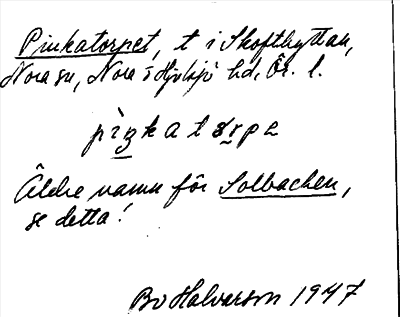 Pinkatorpet, t i Skofthyttan,
Nora sn, Nora o Hjulsjö hd, Ör. l.
pìŋkatɷrpe
Äldre namn för Solbacken,
se detta!
Bo Halvarson 1947